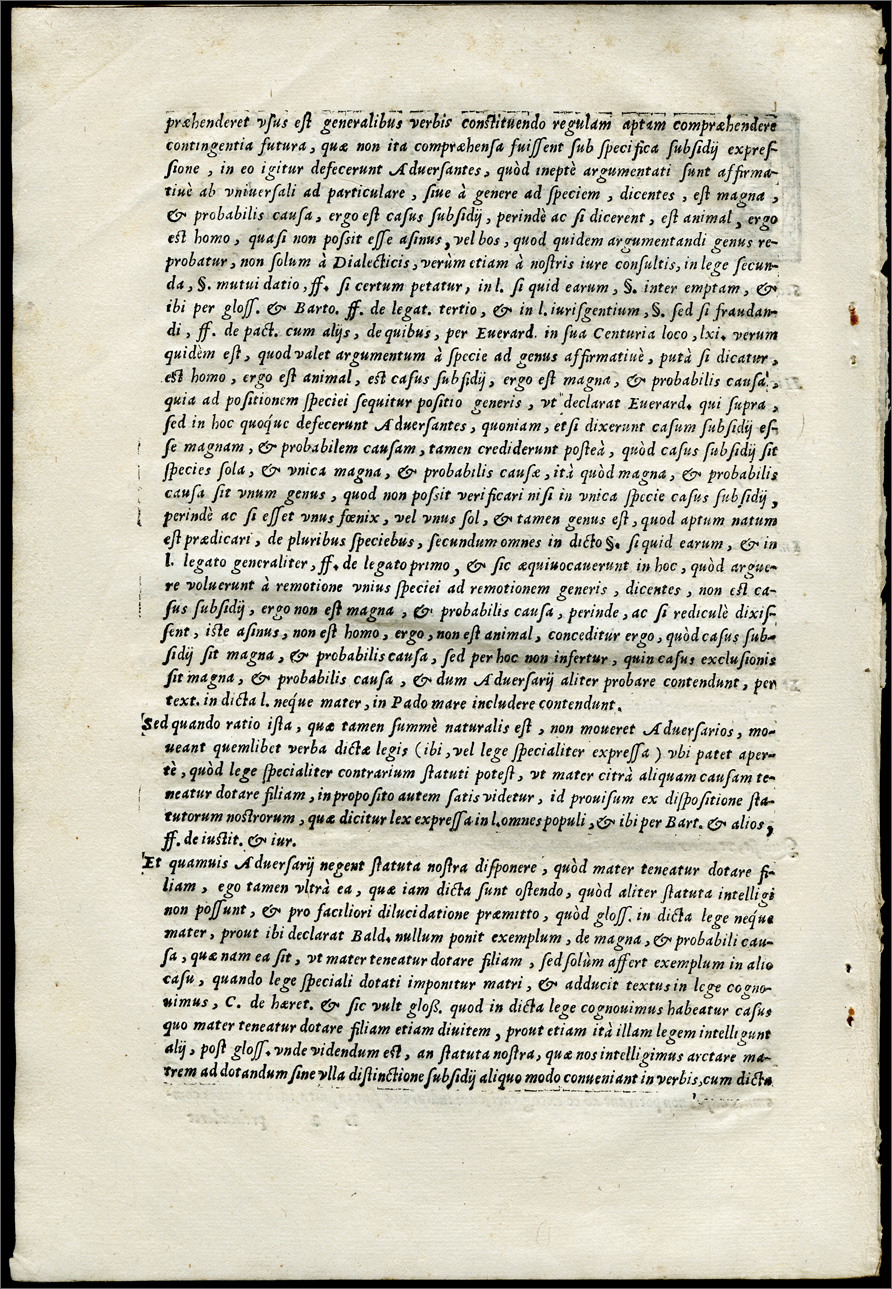 præhenderet vsus est generalibus verbis constituendo regulam aptam compræhendere
contingentia futura, quæ non ita compræhensa fuissent sub specifica subsidij expres-
sione, in eo igitur defecerunt Aduersantes, quòd ineptè argumentati sunt affirma-
tiuè ab vniuersali ad particulare, siue à genere ad speciem, dicentes, est magna,
& probabilis causa, ergo est casus subsidij, perindè ac si dicerent, est animal, ergo
est homo, quasi non possit esse asinus, vel bos, quod quidem argumentandi genus re-
probatur, non solum à Dialecticis, verùm etiam à nostris iure consultis, in lege secun-
da, §. mutui datio, ff. si certum petatur, in l. si quid earum, §. inter emptam, &
ibi per gloss. & Barto. ff. de legat. tertio, & in l. iurisgentium, §. sed si fraudan-
di, ff. de pact. cum alijs, de quibus, per Euerard. in sua Centuria loco, lxi. verum
quidèm est, quod valet argumentum à specie ad genus affirmatiuè, putà si dicatur,
est homo, ergo est animal, est casus subsidij, ergo est magna, & probabilis causa,
quia ad positionem speciei sequitur positio generis, vt declarat Euerard. qui supra,
sed in hoc quoque defecerunt Aduersantes, quoniam, etsi dixerunt casum subsidij es-
se magnam, & probabilem causam, tamen crediderunt posteà, quòd casus subsidij sit
species sola, & vnica magna, & probabilis causæ, ità quòd magna, & probabilis
causa sit vnum genus, quod non possit verificari nisi in vnica specie casus subsidij,
perindè ac si esset vnus fœnix, vel vnus sol, & tamen genus est, quod aptum natum
est prædicari, de pluribus speciebus, secundum omnes in dicto §. si quid earum, & in
l. legato generaliter, ff. de legato primo, & sic æquiuocauerunt in hoc, quòd argue-
re voluerunt à remotione vnius speciei ad remotionem generis, dicentes, non est ca-
sus subsidij, ergo non est magna, & probabilis causa, perinde, ac si rediculè dixis-
sent, iste asinus, non est homo, ergo, non est animal, conceditur ergo, quòd casus sub-
sidij sit magna, & probabilis causa, sed per hoc non infertur, quin casus exclusionis
sit magna, & probabilis causa, & dum Aduersarij aliter probare contendunt, per
text. in dicta l. neque mater, in Pado mare includere contendunt.
Sed quando ratio ista, quæ tamen summè naturalis est, non moueret Aduersarios, mo-
ueant quemlibet verba dictæ legis (ibi, vel lege specialiter expressa) vbi patet aper-
tè, quòd lege specialiter contrarium statuti potest, vt mater citrà aliquam causam te-
neatur dotare filiam, in proposito autem satis videtur, id prouisum ex dispositione sta-
tutorum nostrorum, quæ dicitur lex expressa in l. omnes populi, & ibi per Bart. & alios,
ff. de iustit. & iur.
Et quamuis Aduersarij negent statuta nostra disponere, quòd mater teneatur dotare fi-
liam, ego tamen vltrà ea, quæ iam dicta sunt ostendo, quòd aliter statuta intelligi
non possunt, & pro faciliori dilucidatione præmitto, quòd gloss. in dicta lege neque
mater, prout ibi declarat Bald. nullum ponit exemplum, de magna, & probabili cau-
sa, quæ nam ea sit, vt mater teneatur dotare filiam, sed solùm affert exemplum in alio
casu, quando lege speciali dotati imponitur matri, & adducit textus in lege cogno-
uimus, C. de hæret. & sic vult gloß. quod in dicta lege cognouimus habeatur casus
quo mater teneatur dotare filiam etiam diuitem, prout etiam ità illam legem intelligunt
alij, post gloss. vnde videndum est, an statuta nostra, quæ nos intelligimus arctare ma-
trem ad dotandum sine vlla distinctione subsidij aliquo modo conueniant in verbis, cum dicta